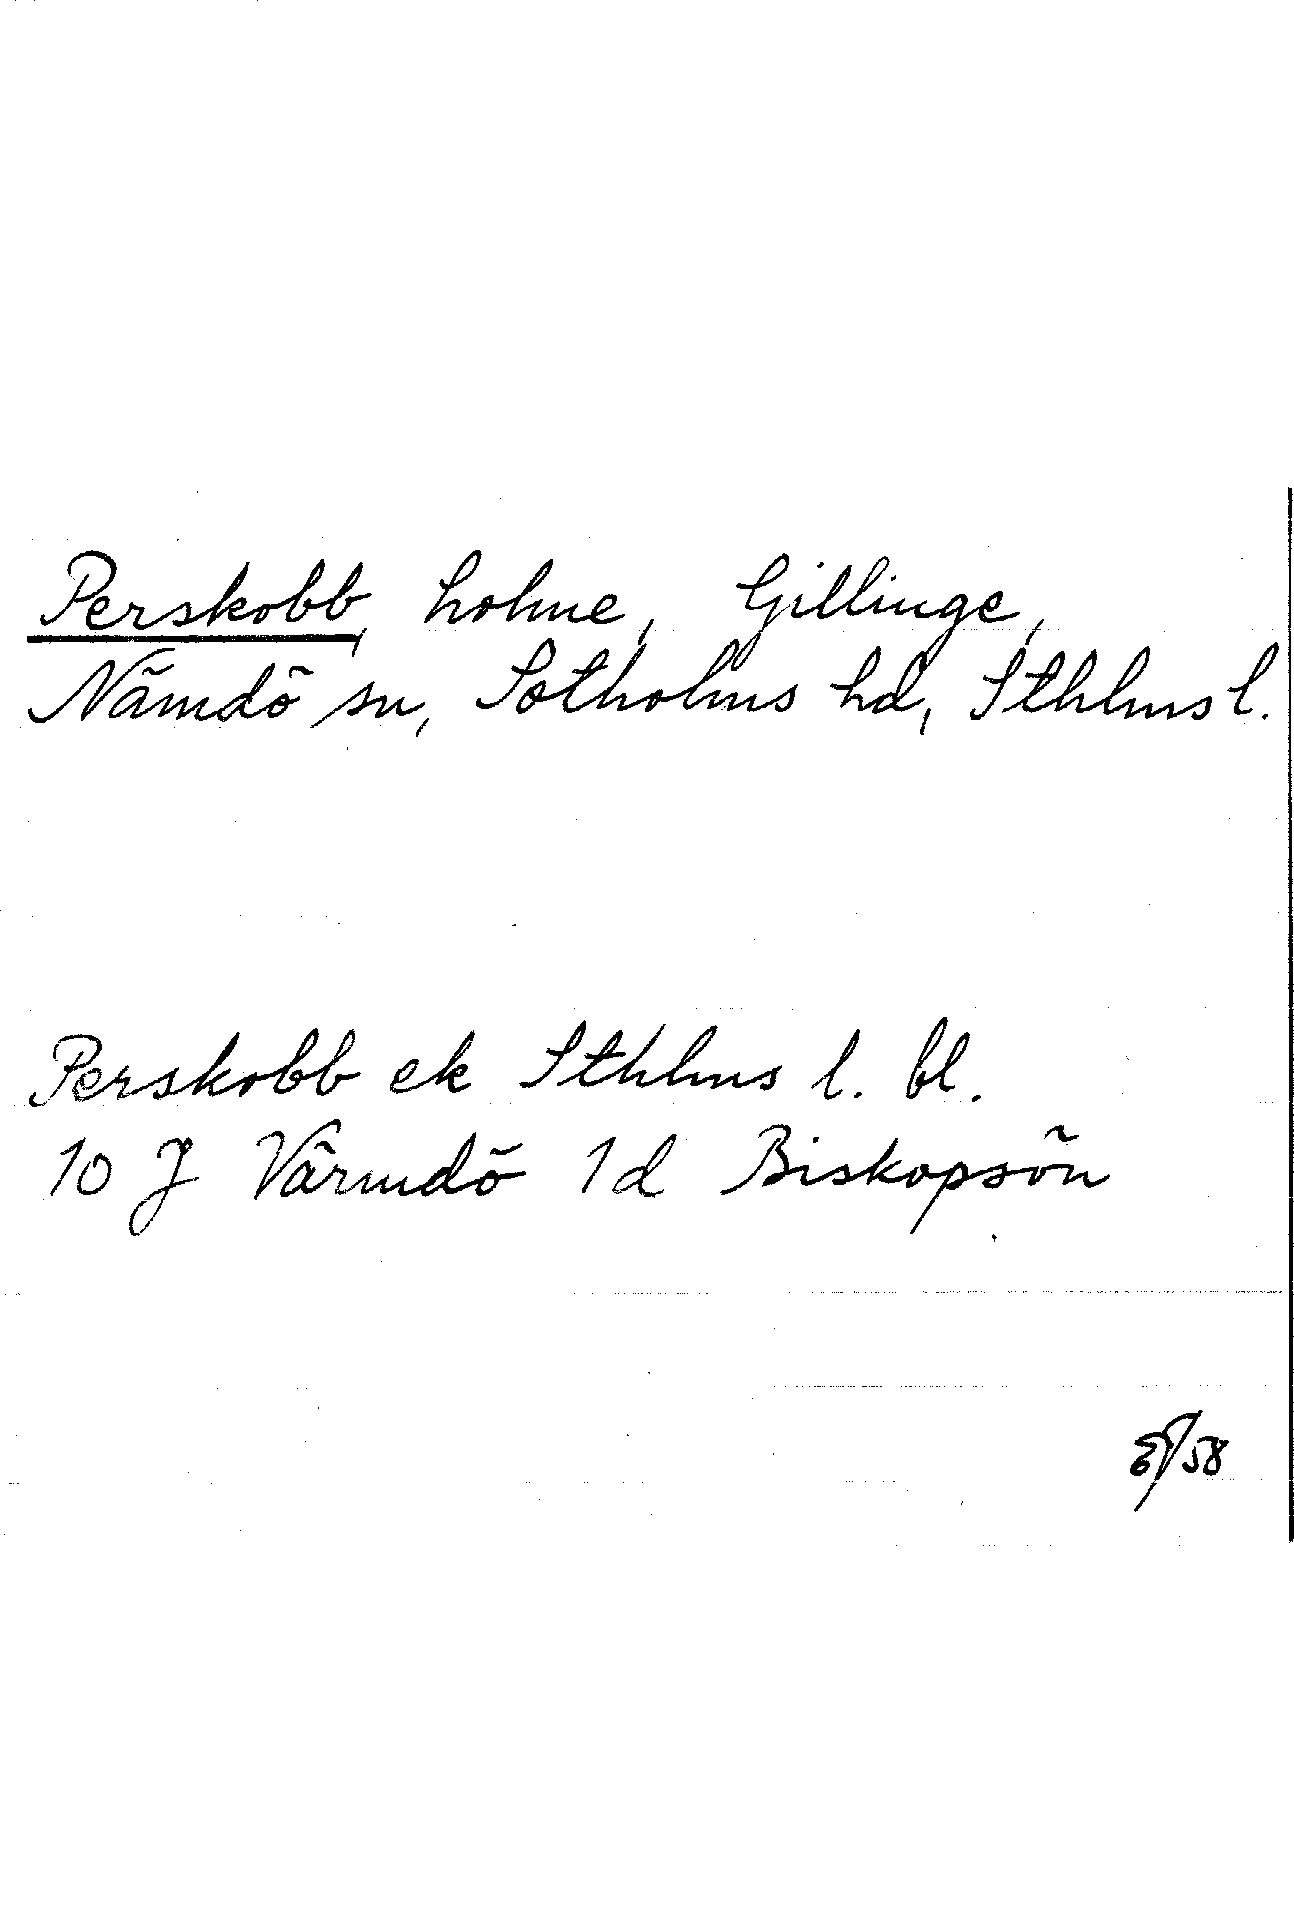 Perskobb, holme, Gillinge,
Nämdö sn, Sotholms hd, Sthlms l.
Perskobb ek Sthlms l. bl.
10 J Värmdö 1d Biskopsön
/58